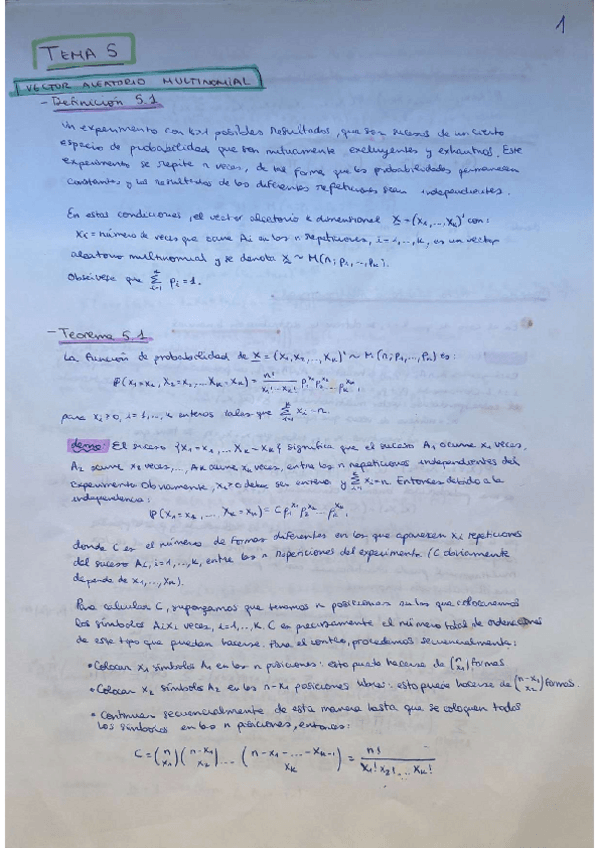 1
TEMA 5
VECTOR ALEATORIO MULTINOMIAL
- Definición 5.1
Un experimento con k≥1 posibles resultados, que son sucesos de un cierto
espacio de probabilidad que son mutuamente excluyentes y exhaustivos. Este
experimento se repite n veces, de tal forma que las probabilidades permanecen
constantes y los resultados de las diferentes repeticiones sean independientes.
En estas condiciones, el vector aleatorio k dimensional X = (X₁,...,Xₖ)' con:
Xᵢ = número de veces que ocurre Aᵢ en las n repeticiones, i=1,...,k, es un vector
aleatorio multinomial y se denota X ~ M(n; p₁,...,pₖ).
Obsérvese que Σᵢ₌₁ᵏ pᵢ = 1.
- Teorema 5.1
La función de probabilidad de X = (X₁, X₂,..., Xₖ)' ~ M(n; p₁,...,pₖ) es:
P(X₁=x₁, X₂=x₂,... Xₖ=xₖ) = n!/(x₁!...xₖ!) p₁^x₁ p₂^x₂ ... pₖ^xₖ,
para xᵢ≥0, i=1,...,k enteros tales que Σᵢ₌₁ᵏ xᵢ = n.
demo: El suceso {X₁=x₁,... Xₖ=xₖ} significa que el suceso A₁ ocurre x₁ veces,
A₂ ocurre x₂ veces,..., Aₖ ocurre xₖ veces, entre las n repeticiones independientes del
experimento. Obviamente, xᵢ≥0 deben ser enteros y Σxᵢ=n. Entonces debido a la
independencia:
P(X₁=x₁,... Xₖ=xₖ) = C p₁^x₁ p₂^x₂ ... pₖ^xₖ,
donde C es el número de formas diferentes en las que aparecen xᵢ repeticiones
del suceso Aᵢ, i=1,...,k, entre las n repeticiones del experimento. (C obviamente
depende de x₁,...,xₖ).
Para calcular C, supongamos que tenemos n posiciones en las que colocaremos
los símbolos Aᵢ xᵢ veces, i=1,...,k. C es precisamente el número total de ordenaciones
de este tipo que pueden hacerse. Para el conteo, procedemos secuencialmente:
• Colocar x₁ símbolos A₁ en las n posiciones: esto puede hacerse de (n x₁) formas
• Colocar x₂ símbolos A₂ en las n-x₁ posiciones libres: esto puede hacerse de (n-x₁ x₂) formas.
• Continuar secuencialmente de esta manera hasta que se coloquen todos
los símbolos en las n posiciones, entonces:
C = (n x₁)(n-x₁ x₂)...(n-x₁-...-xₖ₋₁ xₖ) = n!/(x₁! x₂!... xₖ!)